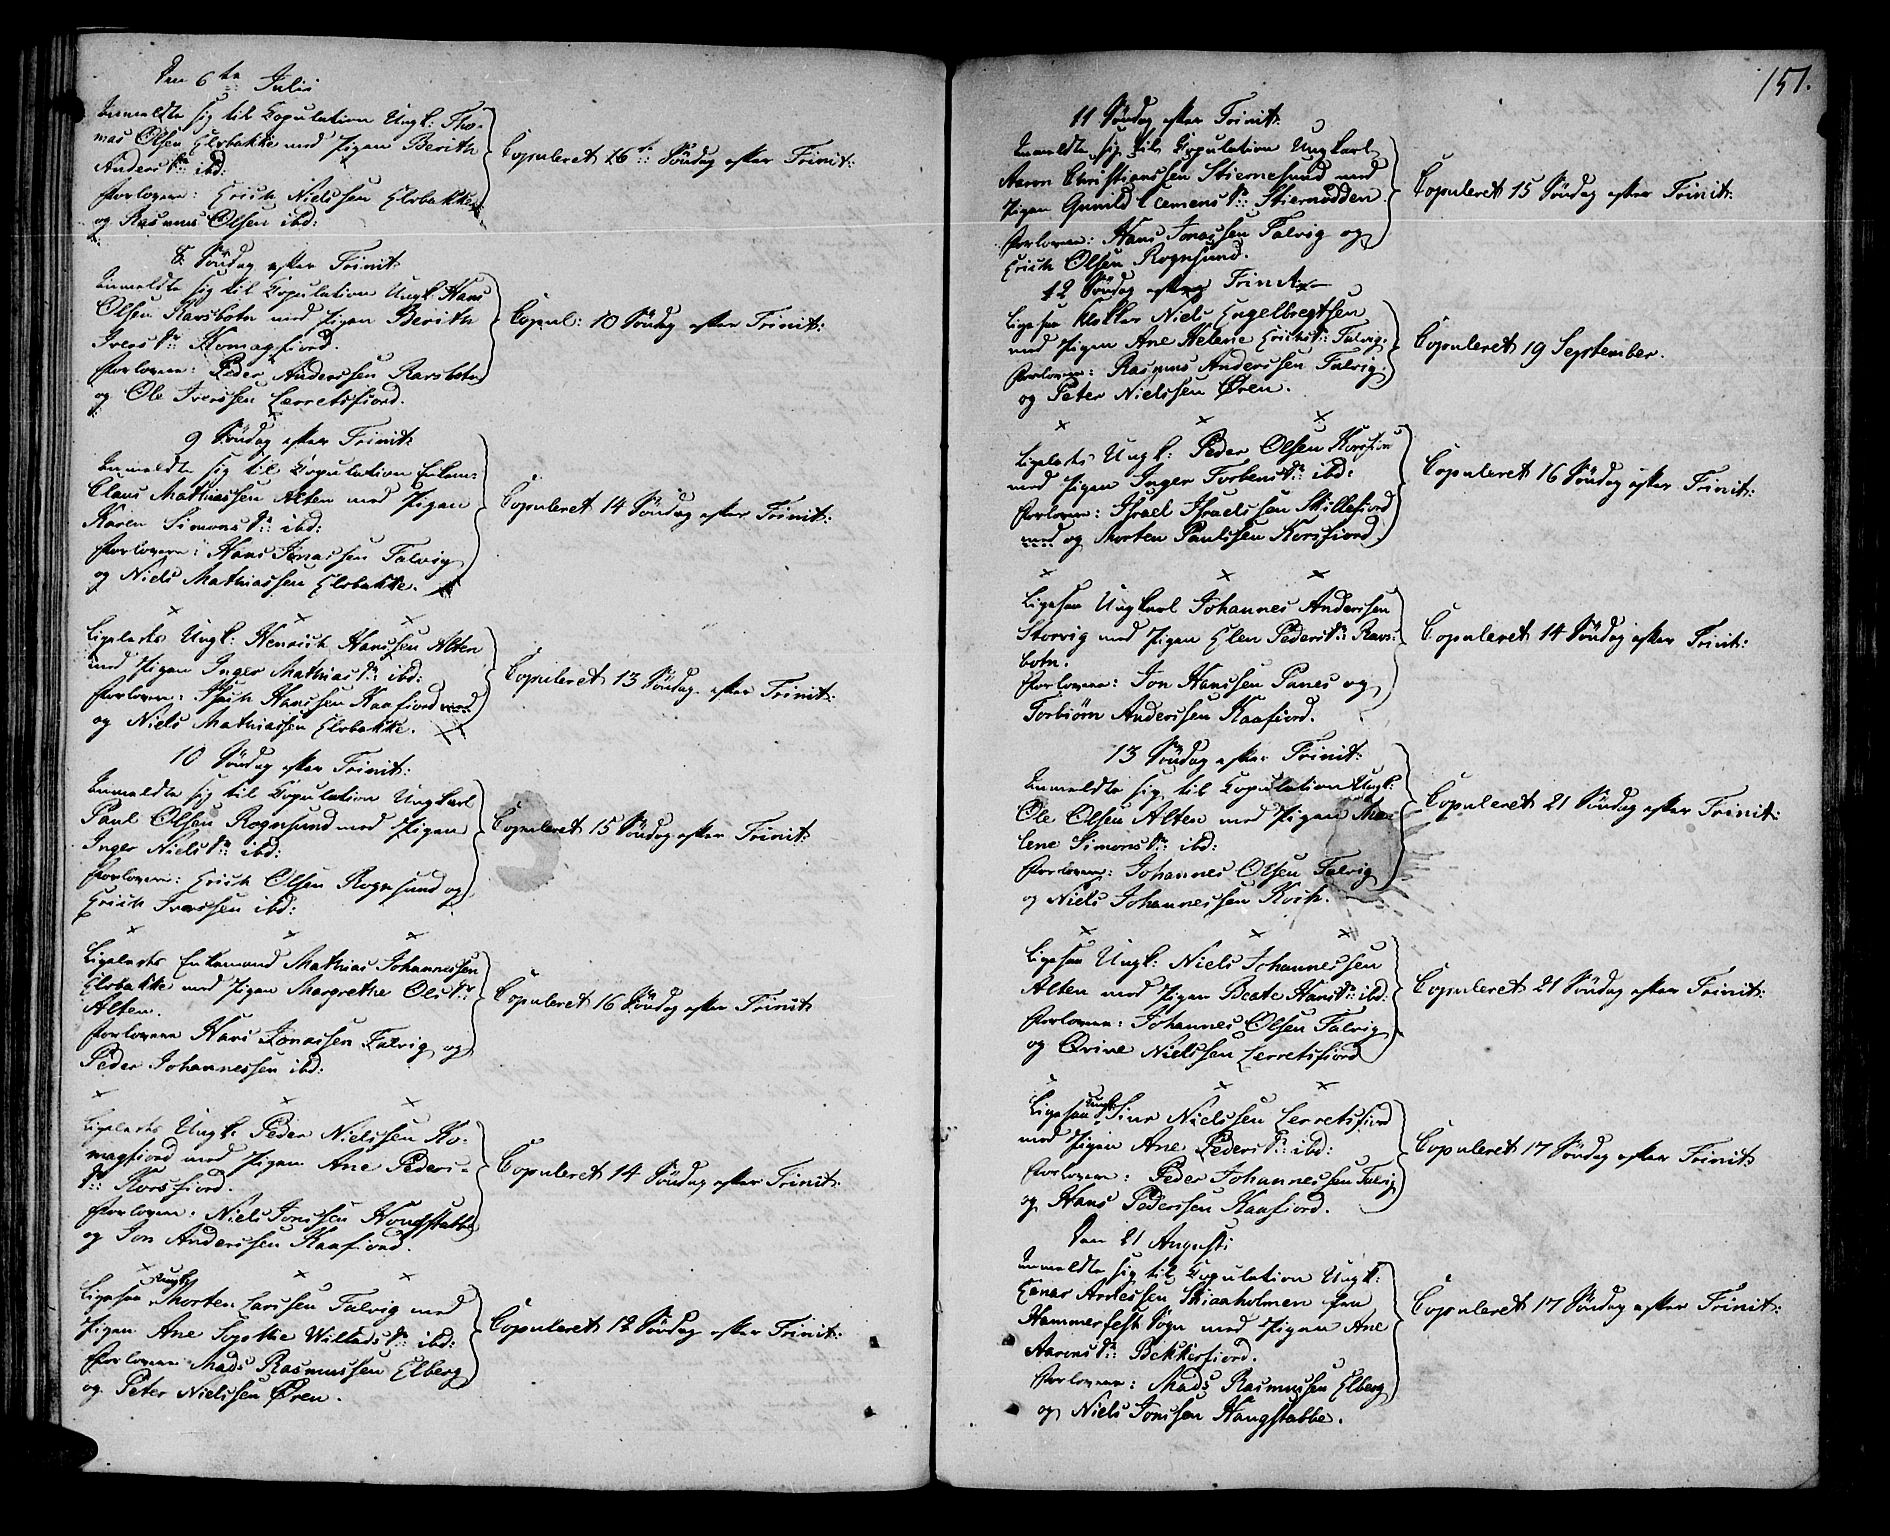 Den 6te Julii
Anmeldte sig til Copulation Ungk: Tho-
mas Olsen Elvbakke med Pigen Berith
Andersdr: ibd:
Forlovere: Erich Nielssen Elvbakke
og Rasmus Olsen ibd:
Copuleret 16te Søndag efter Trinit:
8 Søndag efter Trinit:
Anmeldte sig til Copulation Ungk: Hans
Olsen Rarsbotn med Pigen Berith
Iversdr: Komagfiord.
Forlovere: Peder Anderssen Rarsbotn
og Ole Iverssen Lerretsfiord.
Copul: 10 Søndag efter Trinit:
9 Søndag efter Trinit:
Anmeldte sig til Copulation Enkem:
Claus Mathiassen Alten med Pigen
Karen Simonsdr: ibd:
Forlovere: Hans Jonassen Talvig
og Niels Mathiassen Elvbakke.
Copuleret 14 Søndag efter Trinit:
Ligeledes Ungk: Henrich Hanssen Alten
med Pigen Inger Mathiasdr: ibd:
Forlovere: Hanssen Kaafiord
og Niels Mathiassen Elvbakke.
Copuleret 13 Søndag efter Trinit:
10 Søndag efter Trinit:
Anmeldte sig til Copulation Ungkarl
Paul Olsen Rognsund med Pigen
Inger Nielsdr: ibd:
Forlovere: Erich Olsen Rognsund og
Erich Iverssen ibd:
Copuleret 15 Søndag efter Trinit:
Ligeledes Enkemand Mathias Johannessen
Elvbakke med Pigen Margrethe Olsdr:
Alten.
Forlovere Hans Jonassen Talvig og
Peder Johannessen ibd:
Copuleret 16 Søndag efter Trinit:
Ligeledes Ungk: Peder Nielssen Ko-
magfiord med Pigen Ane Peders-
dr: Korsfiord.
Forlovere: Niels Jonssen Haugstabbe
og Jon Anderssen Kaafiord.
Copuleret 14 Søndag efter Trinit:
Ligesaa Ungk: Morten Larssen Talvig med
Pigen Ane Sophie Willadsdr: ibd:
Forlovere Mads Rasmussen Elberg
og Peter Nielssen Øren.
Copuleret 12 Søndag efter Trinit:
151.
11 Søndag efter Trinit:
Anmeldte sig til Copulation Ungkarl
Aaron Christianssen Stiernesund med
Pigen Gunild Clemensdr: Stiernødden
Forlovere: Hans Jonassen Talvig og
Erich Olsen Rognsund.
Copuleret 15 Søndag efter Trinit:
12 Søndag efter Trinit:
Ligesaa Klokker Niels Engelbregtsen
med Pigen Ane Helene Erichsdr: Talvig.
Forlovere: Rasmus Anderssen Talvig
og Peter Nielssen Øren.
Copuleret 19 September.
Ligeledes Ungk: Peder Olsen Korsfiord
med Pigen Inger Torbensdr: ibd:
Forlovere: Israel Israelssen Skillefiord
med og Morten Paulssen Korsfiord.
Copuleret 16 Søndag efter Trinit:
Ligesaa Ungkarl Johannes Anderssen
Storvig med Pigen Elen Pedersdr: Rars-
botn.
Forlovere: Jon Hanssen Panes og
Torbiørn Anderssen Kaafiord.
Copuleret 14 Søndag efter Trinit:
13 Søndag efter Trinit:
Anmeldte sig til Copulation Ungk:
Ole Olsen Alten med Pigen Ma-
lene Simonsdr: ibd:
Forlovere: Johannes Olsen Talvig
og Niels Johannessen Koch.
Copuleret 21 Søndag efter Trinit:
Ligesaa Ungk: Niels Johannessen
Alten med Pigen Beate Hansdr: ibd:
Forlovere: Johannes Olsen Talvig
og Ørine Nielssen Lerretsfiord
Copuleret 21 Søndag efter Trinit:
Ligesaa Ungk: Siur Nielssen Lerretsfiord
med Pigen Ane Pedersdr: ibd:
Forlovere: Peder Johannessen Talvig
og Hans Pederssen Kaafiord.
Copuleret 17 Søndag efter Trinit:
Den 21 Augusti
Anmeldte sig til Copulation Ungk:
Eenar Arnessen Skiaaholmen fra
Hammerfest Sogn med Pigen Ane
Aaronsdr: Bekkerfiord.
Forlovere: Mads Rasmussen Elberg
og Niels Jonssen Haugstabbe.
Copuleret 17 Søndag efter Trinit: